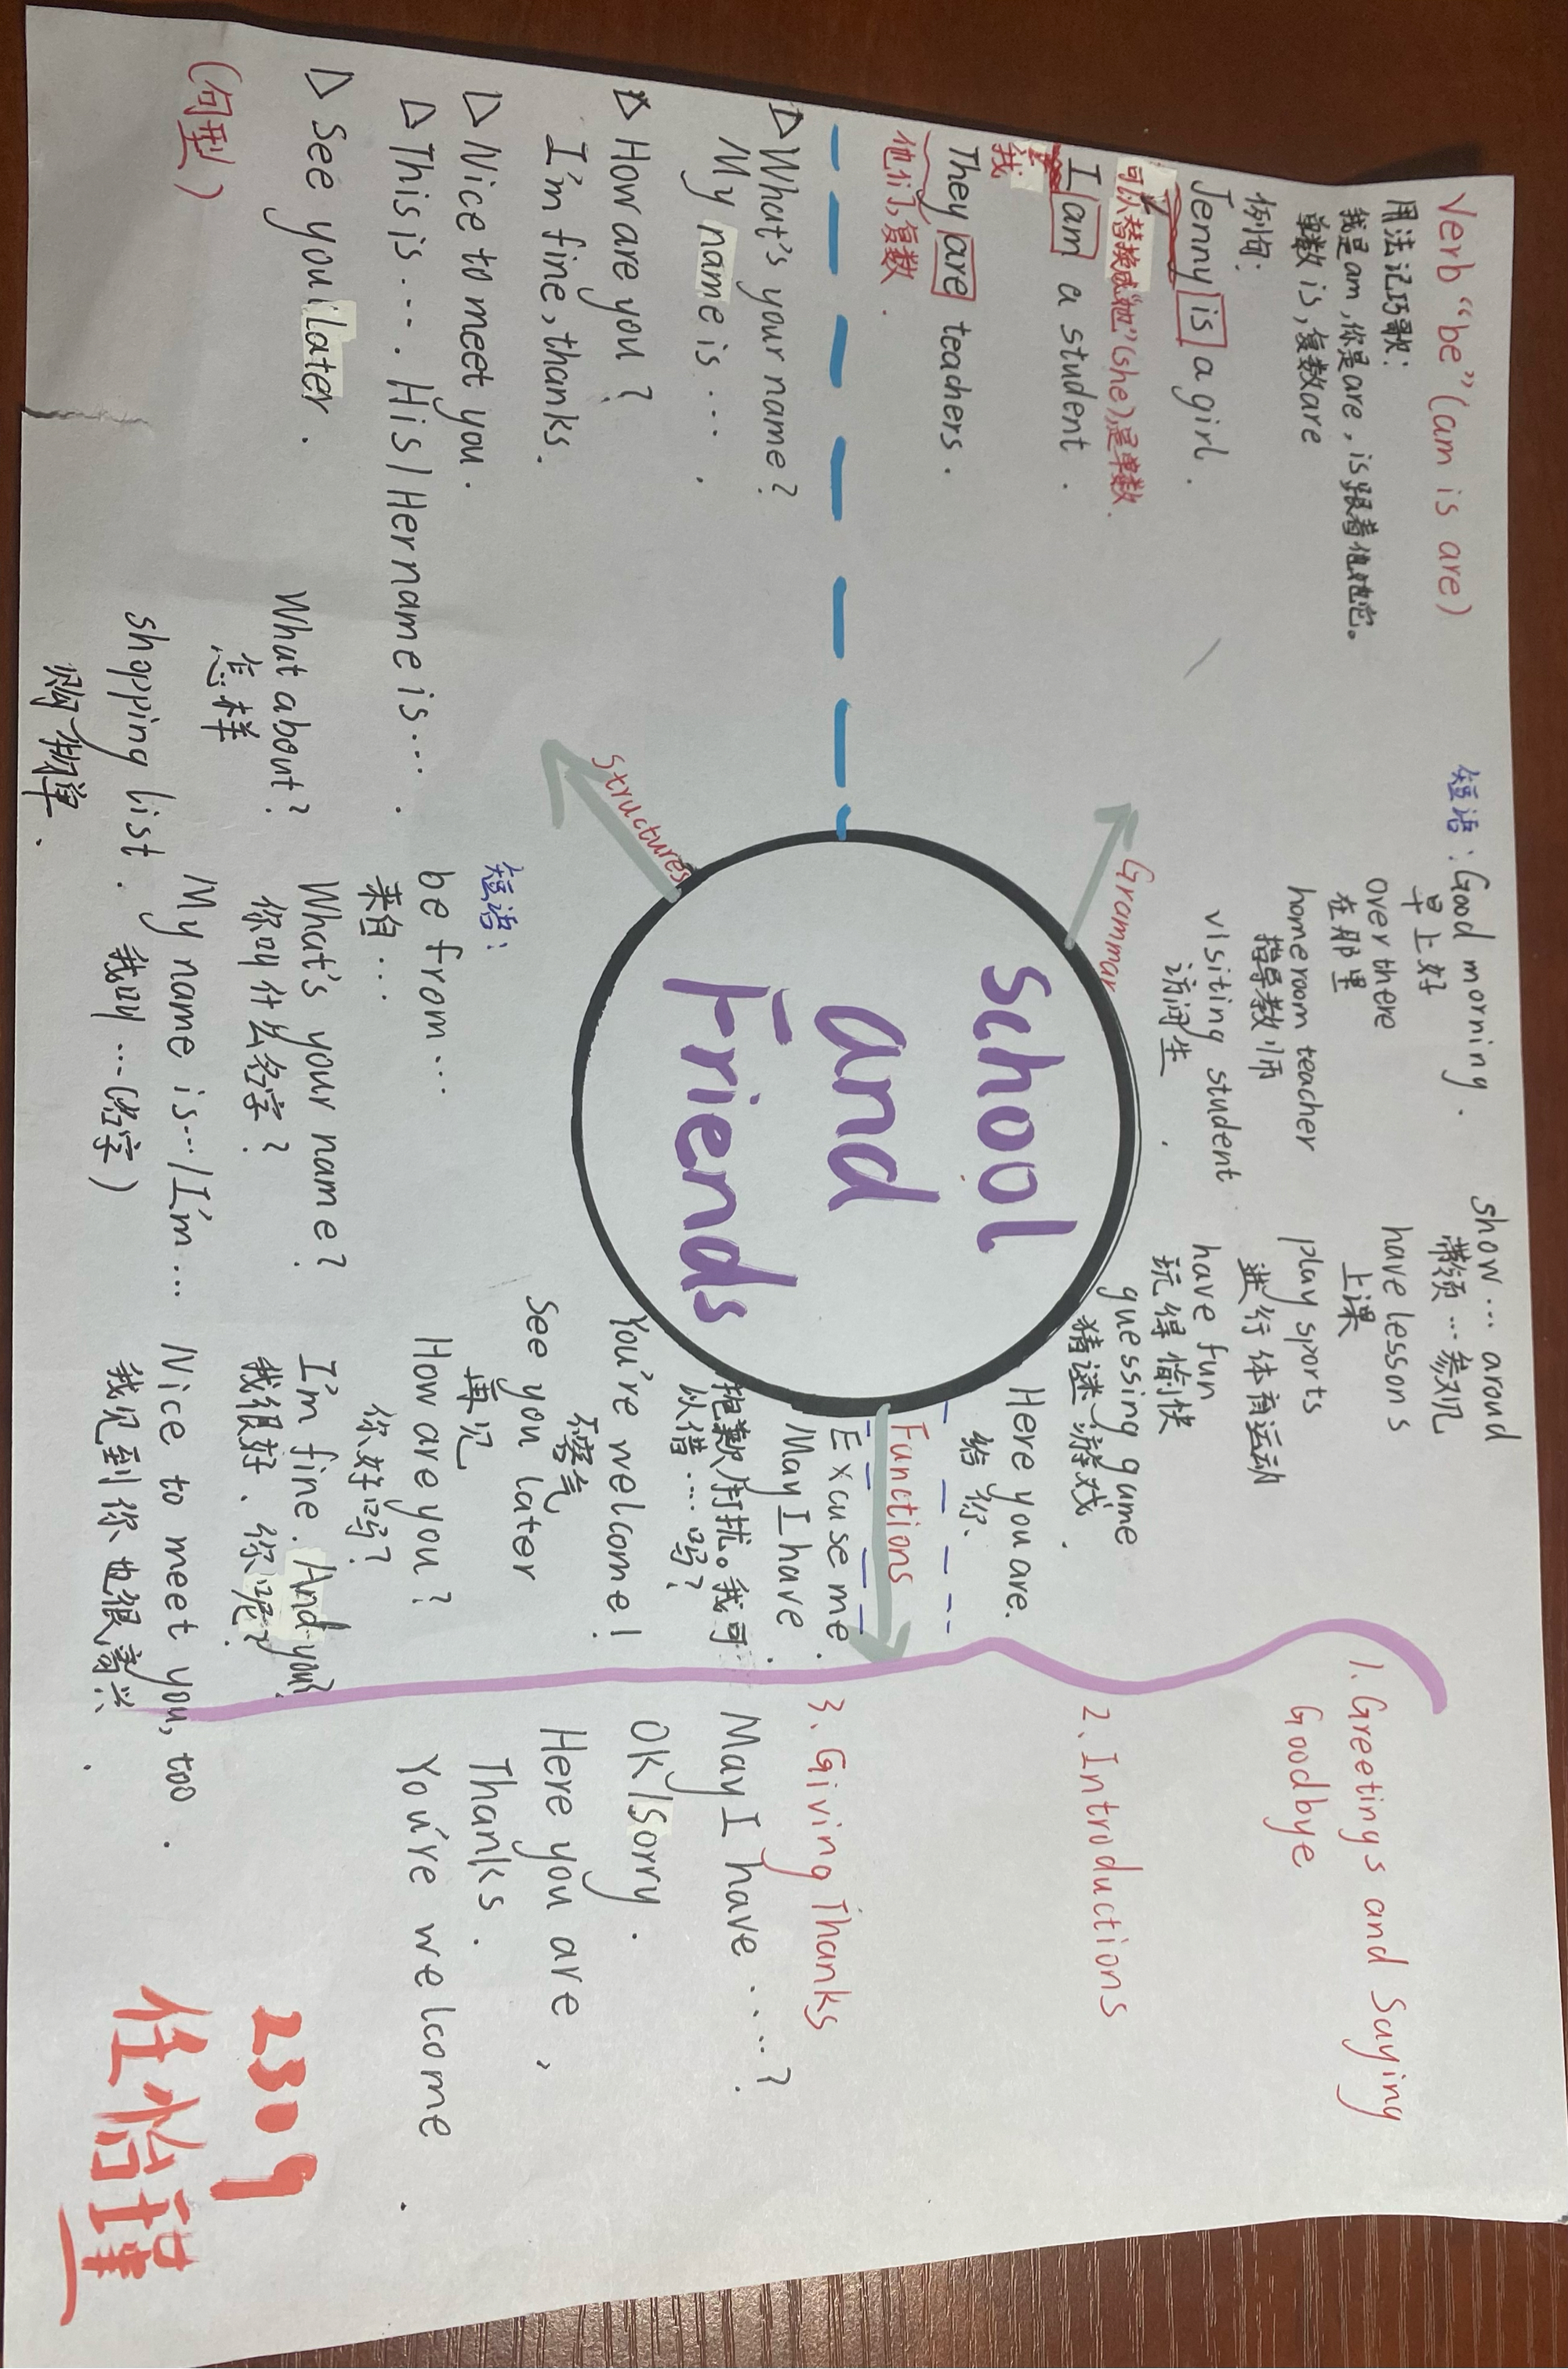 Verb "be" (am is are)
用法记巧歌:
我是am,你是are,is跟着他她它。
单数is,复数are
例句:
Jenny is a girl.
可以替换成"她"(she),是单数.
I am a student.
我
They are teachers.
他们,复数.
短语:Good morning.
早上好
over there
在那里
homeroom teacher
指导教师
visiting student
访问生
show... aroud
带领...参观
have lessons
上课
play sports
进行体育运动
have fun
玩得愉快
guessing game
猜谜游戏.
Here you are.
给你、
Grammar
school
and
Friends
Structures
Functions
△What's your name?
My name is....
△How are you?
I'm fine,thanks.
△Nice to meet you.
△This is.... His/Her name is....
△See you later.
(句型)
短语:
be from...
来自...
What about?
怎样
What's your name?
你叫什么名字?
shopping list.
购物单.
My name is.../I'm...
我叫...(名字)
Excuse me.
May I have.
抱歉打扰。我可
以借....吗?
You're welcome!
不客气
See you later
再见
How are you?
你好吗?
I'm fine. And you?
我很好、你呢?
Nice to meet you, too.
我见到你也很高兴.
1.Greetings and Saying
Goodbye
2、Introductions
3.Giving Thanks
May I have ....?
OK/Sorry.
Here you are,
Thanks.
You're welcome.
2309